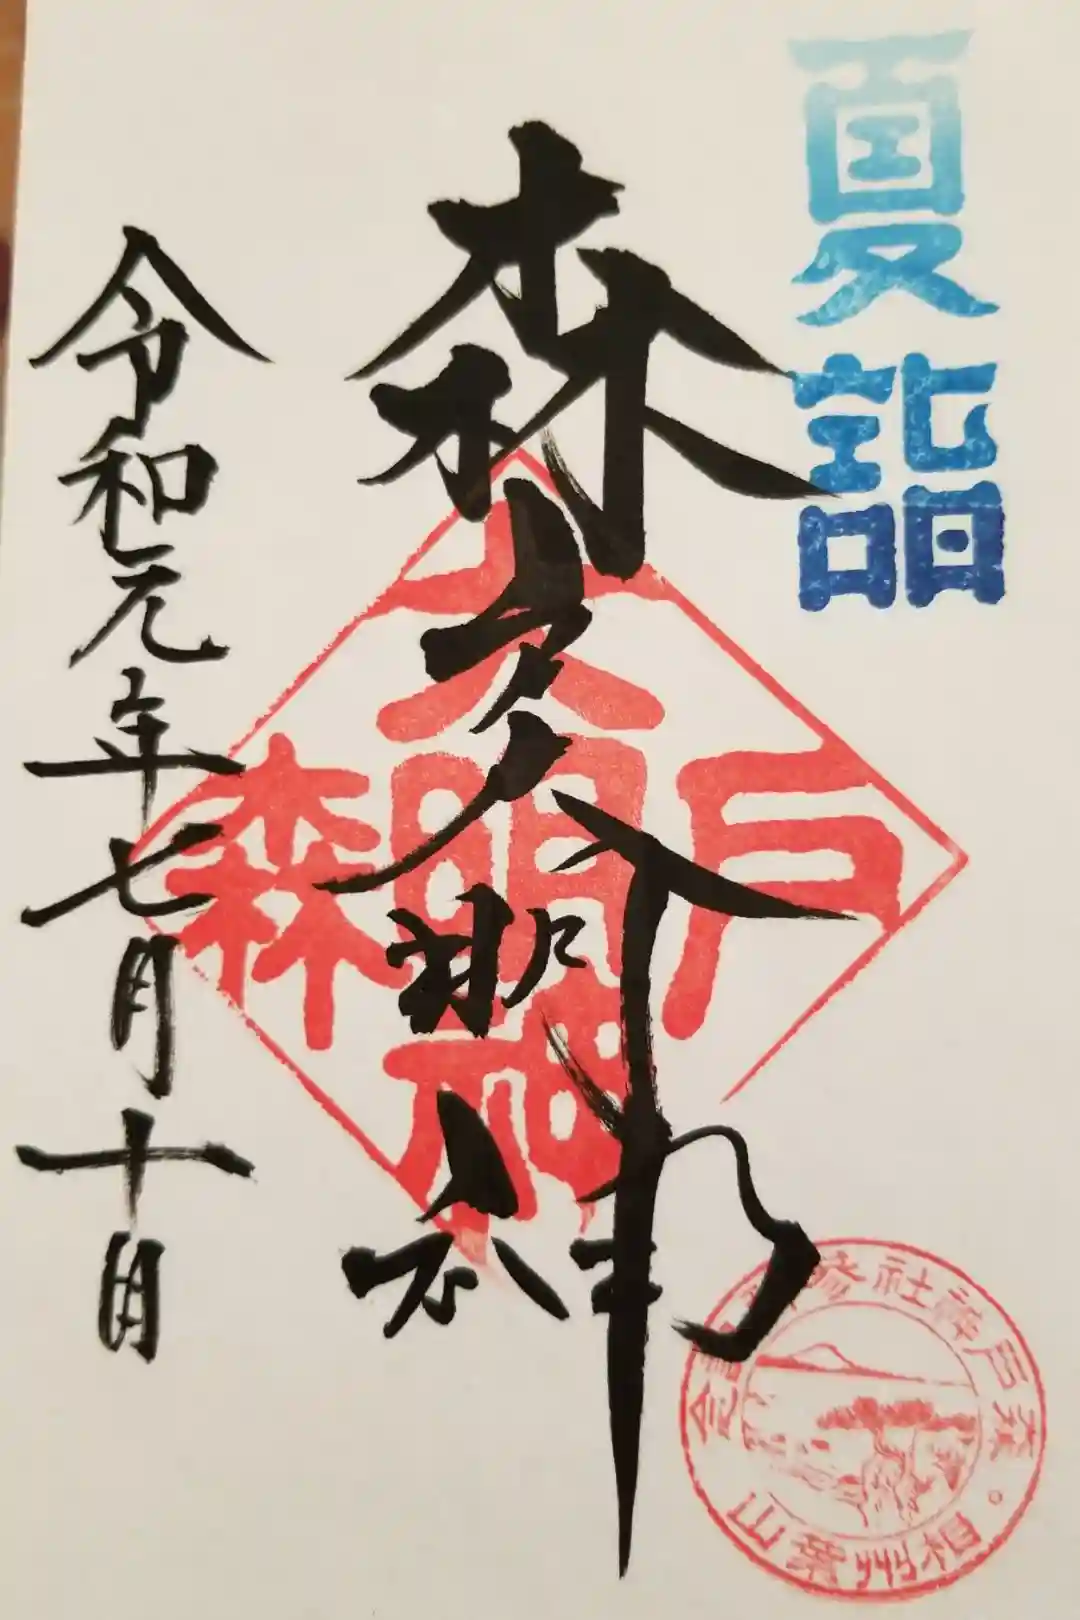 夏詣
森戸大明神
令和元年七月十日
大
森 明 戸
神
森戸神社参拝記念
相州葉山